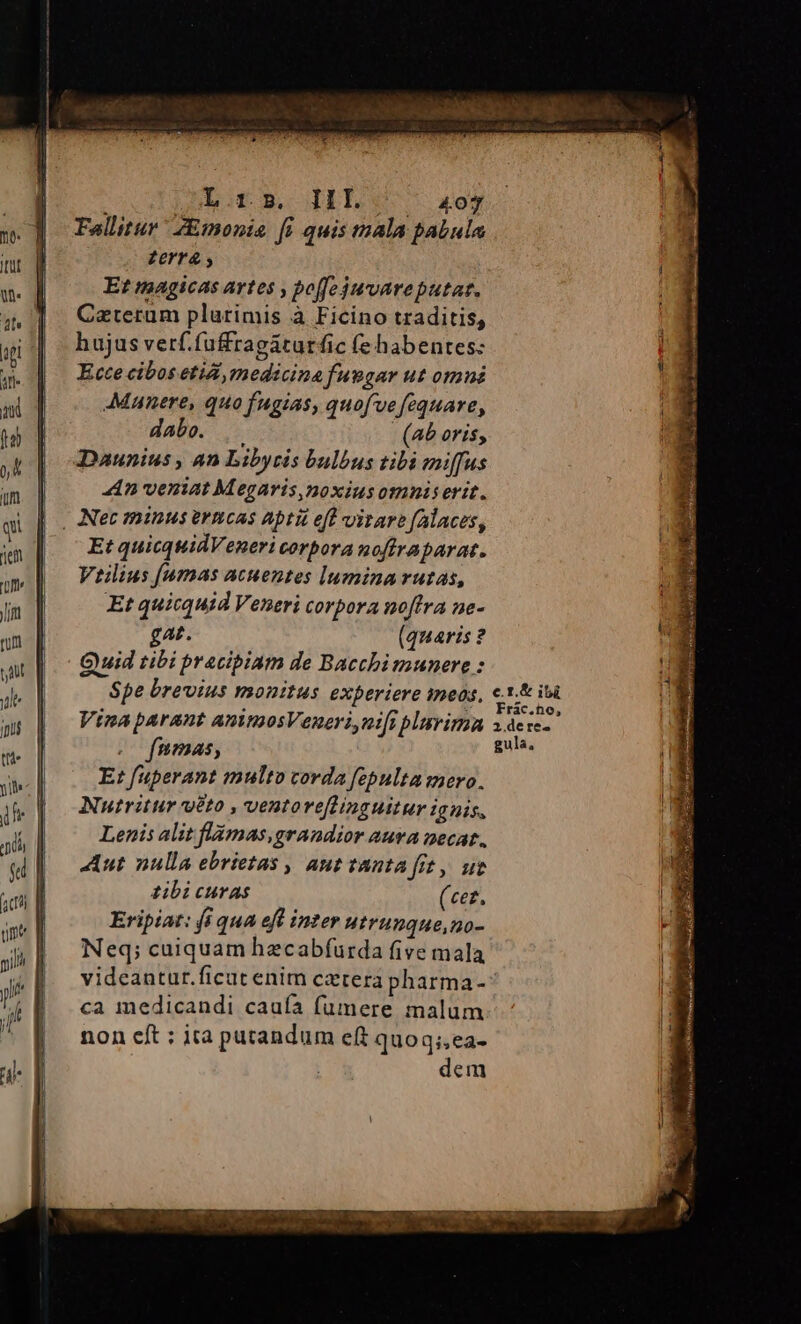 LIB. III. 407
Fallitur Æmoniæ ſi quis mala pabula
terræ,
Et magicas artes, poſſe juvare putat.
Cæterùm plurimis à Ficino traditis,
hujus verſ. ſuffragātur ſic ſe habentes:
Ecce cibos etiā, medicina fungar ut omni
Munere, quo fugias, quoſve ſequare,
dabo. (ab oris,
Daunius, an Libycis bulbus tibi miſſus
An veniat Megaris, noxius omnis erit.
Nec minus erucas aptū eſt vitare ſalaces,
Et quicquid Veneri corpora noſtra parat.
Vtilius ſumas acuentes lumina rutas,
Et quicquid Veneri corpora noſtra ne-
gat. (quæris?
Quid tibi præcipiam de Bacchi munere:
Spe brevius monitus experiere meos,
Vina parant animos Veneri, niſi plurima
ſumas,
Et ſuperant multo corda ſepulta mero.
Nutritur vēto, vento reſtinguitur ignis,
Lenis alit flāmas, grandior aura necat.
Aut nulla ebrietas, aut tanta ſit, ut
tibi curas (cet.
Eripiat: ſi qua eſt inter utrunque, no-
Neq; cuiquam hæc abſurda ſive mala
videantur. ſicut enim cætera pharma-
ca medicandi cauſa ſumere malum
non eſt: ita putandum eſt quoq;, ea-
dem
c. 1. & ibi
Frāc. no,
2. de re-
gula.